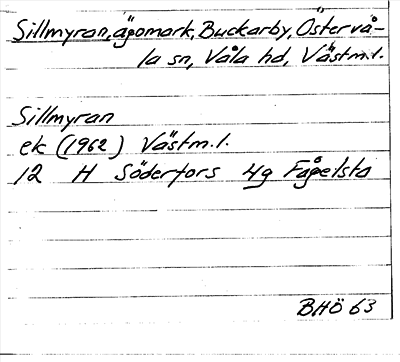 Sillmyran, ägomark, Buckarby, Östervå-
la sn, Våla hd, Västm.l.
Sillmyran
ek (1962) Västm.l.
12 H Söderfors 4g Fågelsta
BHÖ 63